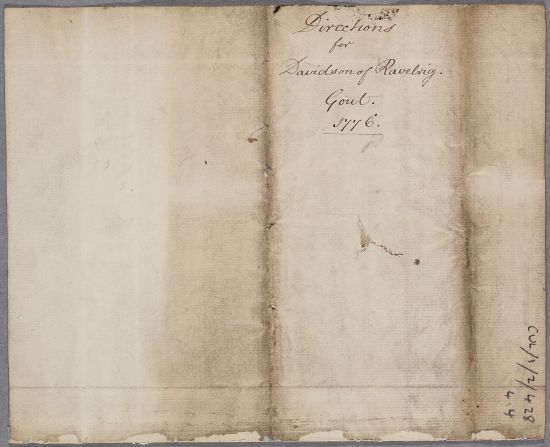 Directions
for
Davidson of Ravelrig.
Gout.
1776.
CUL/1/2/428
4.4